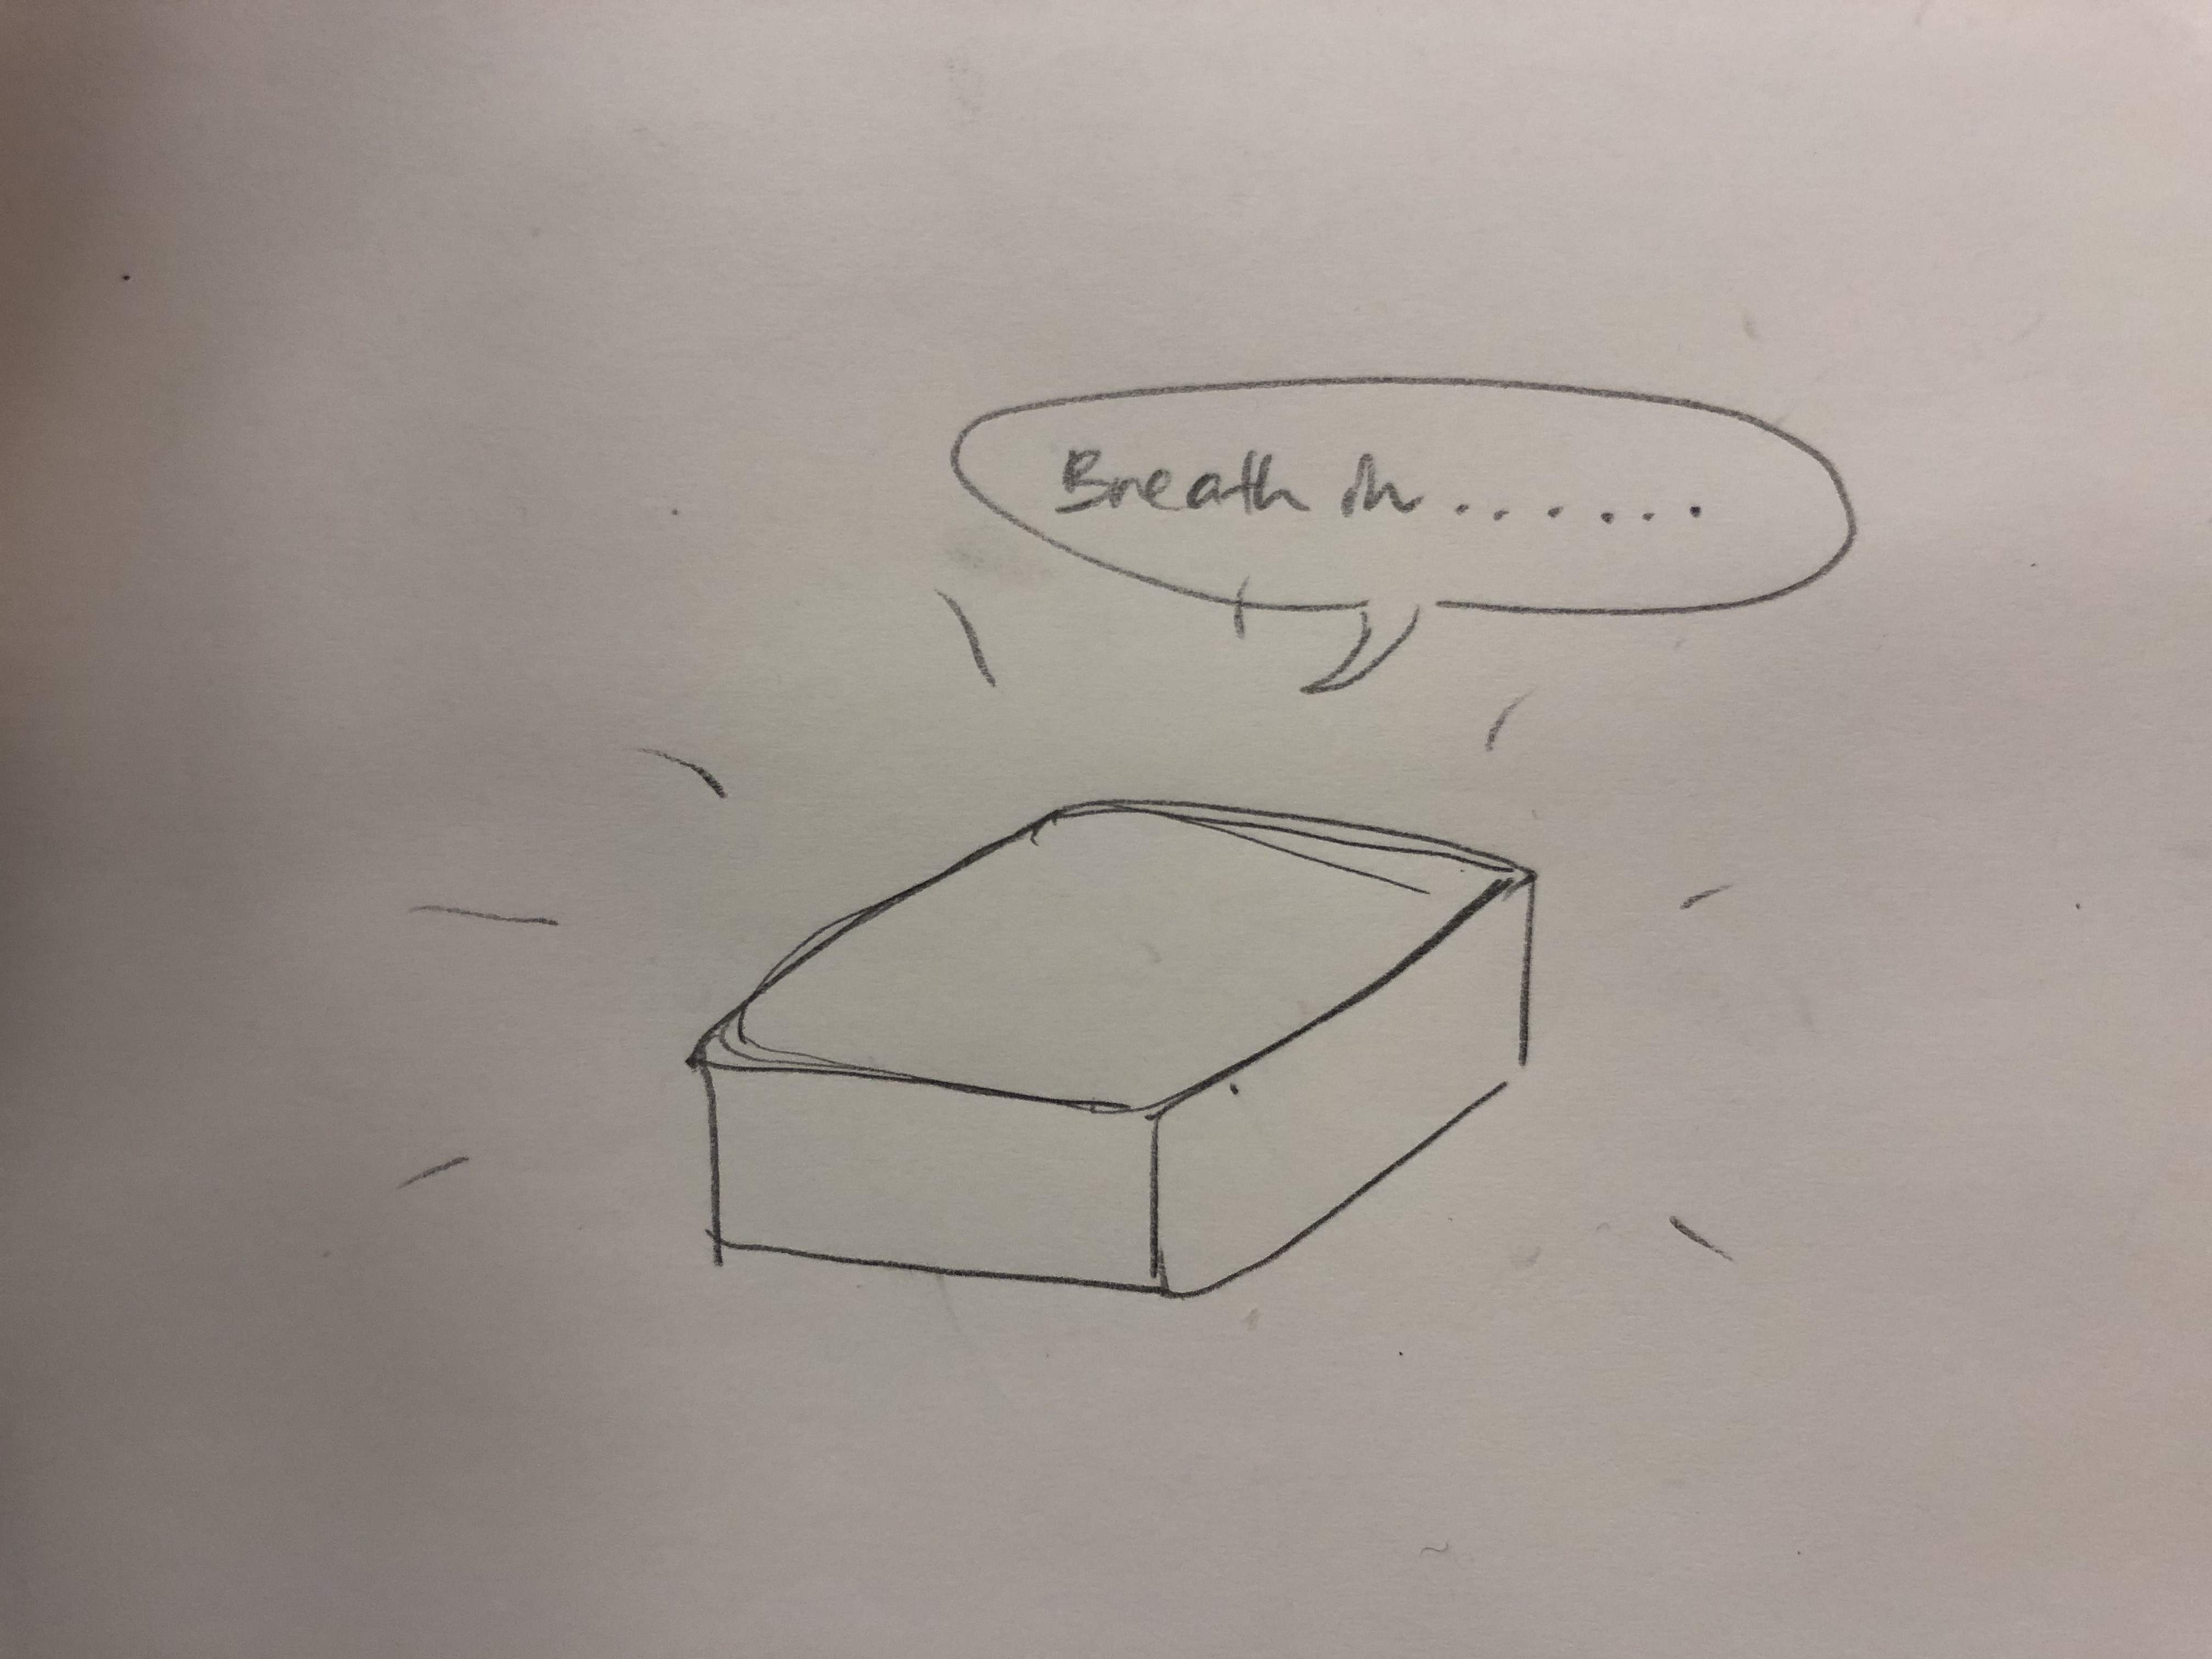 Breath in.......